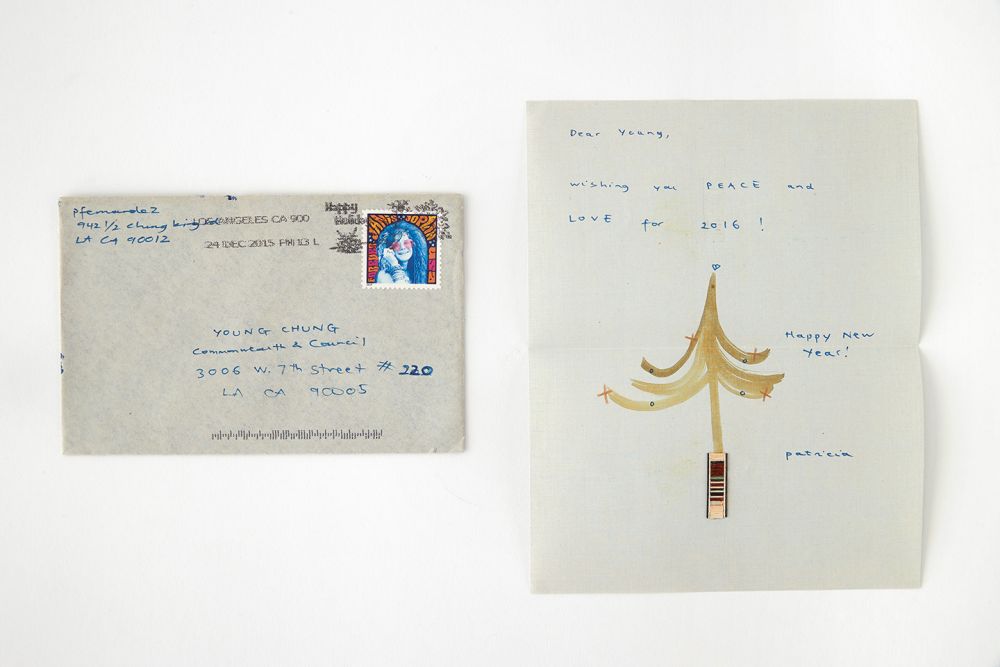 pfernandez
942 1/2 chung king rd
LA CA 90012
LOS ANGELES CA 900
24 DEC 2015 PM 13 L
Happy
JANIS JOPLIN
FOREVER
USA
YOUNG CHUNG
Commonwealth & Council
3006 W. 7th Street # 220
LA CA 90005
Dear Young,
wishing you PEACE and
LOVE for 2016 !
Happy New
Year!
patricia